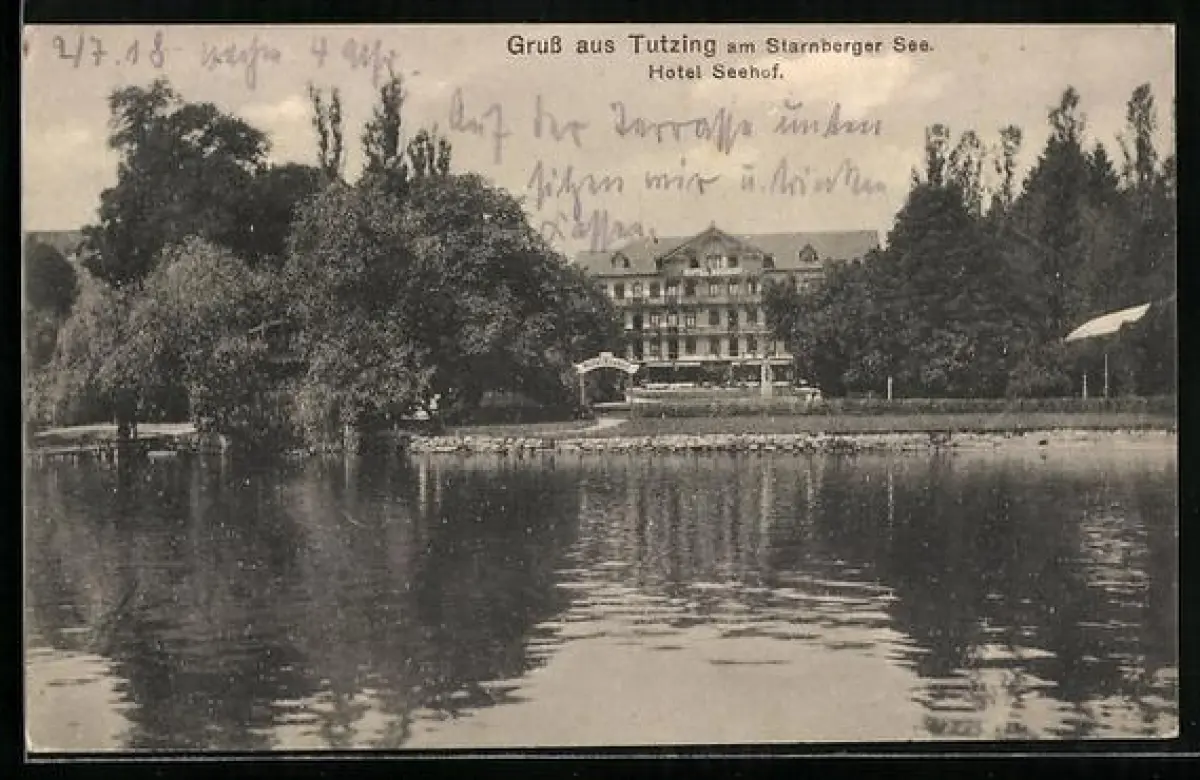 Gruß aus Tutzing am Starnberger See.
Hotel Seehof.
2/7.18 nachm 4 Uhr.
Auf der Terrasse unten
sitzen wir u. trinken
Kaffee.